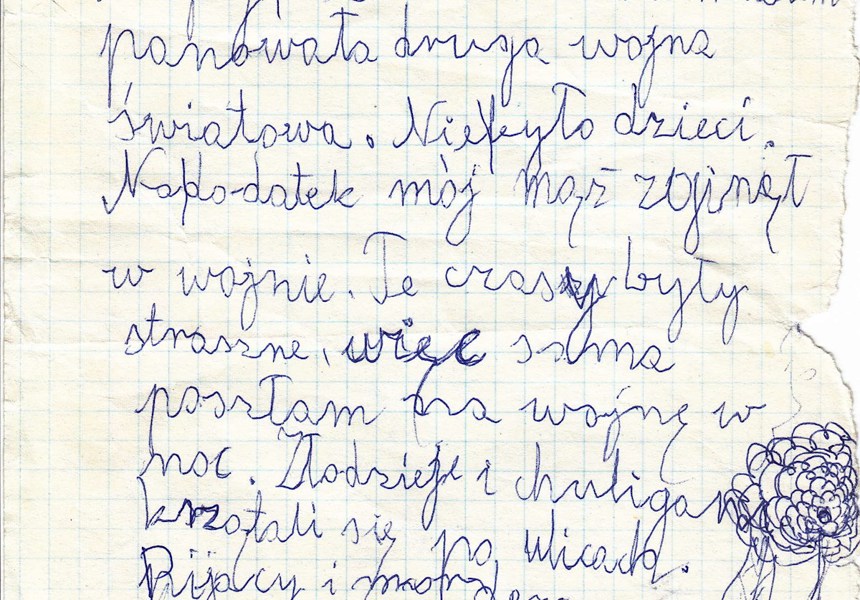 panowała druga wojna
światowa. Niebyło dzieci.
Napodatek mój mąż zginął
w wojnie. Te czasy były
straszne, więc sama
poszłam na wojnę w
noc. Złodzieje i chuligani
krzątali się po ulicach.
Pijacy i